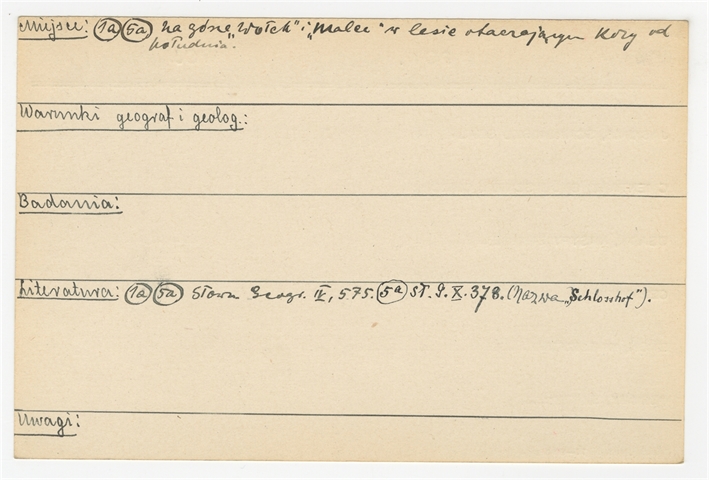 Miejsce: 1a 5a na górze „Wołek" i „Malec" w lesie otaczającym Kozy od
południa.
Warunki geograf i geolog.:
Badania:
Literatura: 1a 5a Słown Geogr. IV, 575. 5a Sł. G. X. 378. (Nazwa „Schlosshof").
Uwagi: